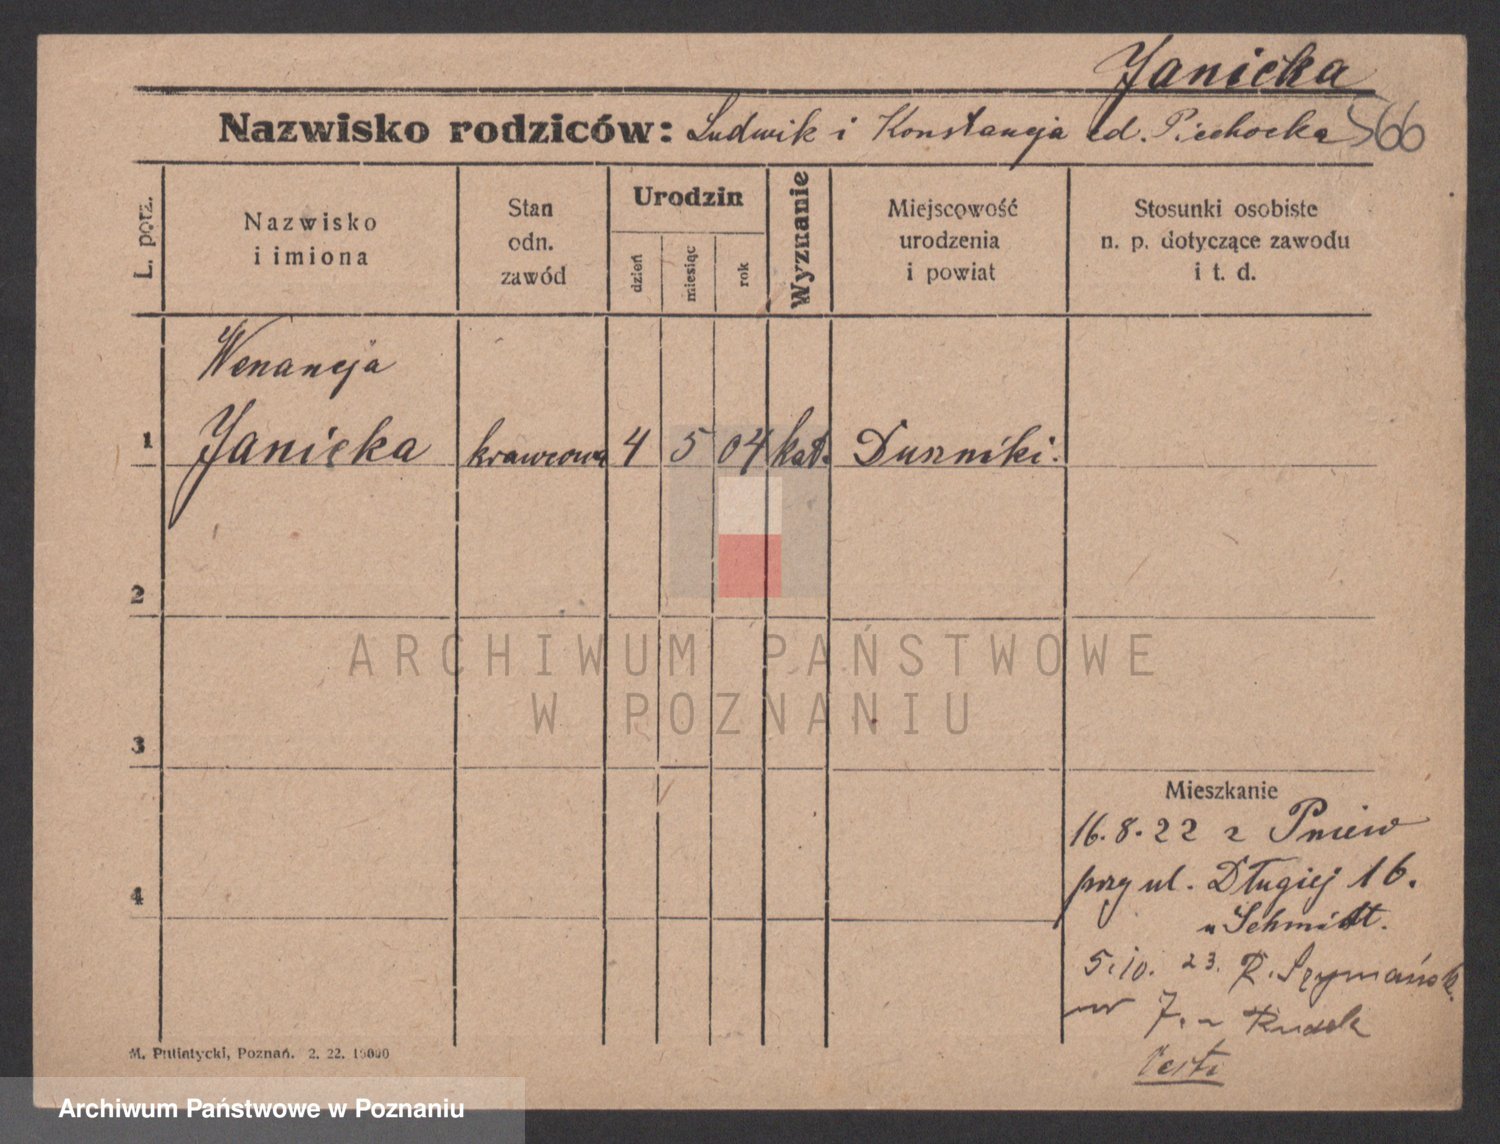 Janicka
Nazwisko rodziców: Ludwik i Konstancja zd. Piechocka 566
L. porz.
Nazwisko
i imiona
Stan
odn.
zawód
Urodzin
dzień
miesiąc
rok
Wyznanie
Miejscowość
urodzenia
i powiat
Stosunki osobiste
n. p. dotyczące zawodu
i t. d.
Wenancja
1 Janicka krawcowa 4 5 04 kat. Duszniki.
2
ARCHIWUM PAŃSTWOWE
W POZNANIU
3
Mieszkanie
16.8.22 z Pniew
przy ul. Długiej 16.
4
u Schmidt.
5.10.23. R. Szymańsk.
7. Rudek
M. Putiatycki, Poznań. 2. 22. 15000
Verte
Archiwum Państwowe w Poznaniu